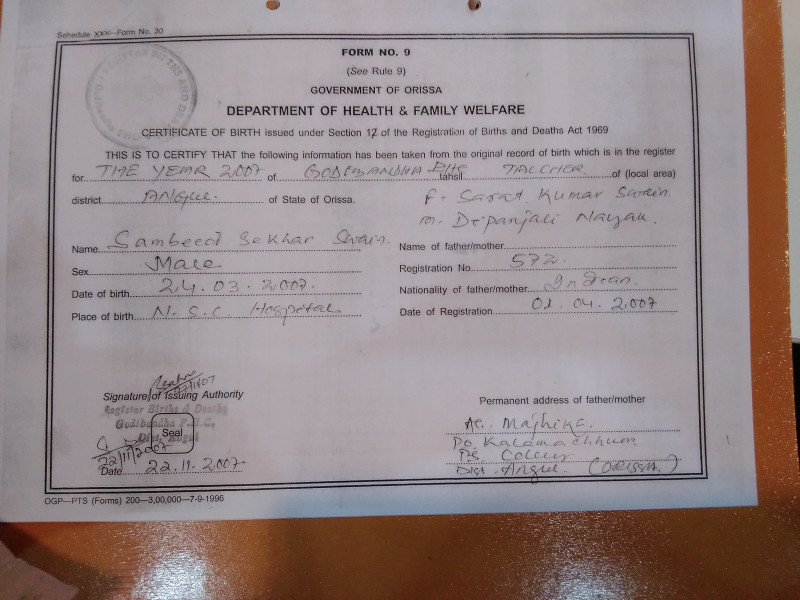 Schedule XXX—Form No. 30
FORM NO. 9
(See Rule 9)
GOVERNMENT OF ORISSA
DEPARTMENT OF HEALTH & FAMILY WELFARE
CERTIFICATE OF BIRTH issued under Section 12 of the Registration of Births and Deaths Act 1969
THIS IS TO CERTIFY THAT the following information has been taken from the original record of birth which is in the register
for THE YEAR 2007 of GODIBANDHA PHC tahsil TALCHER of (local area)
district ANGUL of State of Orissa.
F- Sarat Kumar Swain.
m. Depanjali Nayak.
Name Sambeed Sekhar Swain.
Name of father/mother
Sex Male
Registration No. 572
Date of birth 24.03.2007.
Nationality of father/mother Indian
Place of birth N.S.C. Hospital
Date of Registration 01.04.2007
Signature of Issuing Authority
Registrar Births & Deaths
Godibandha P.H.C.
Dist. Angul
Seal
22/11/2007
Date 22.11.2007
Permanent address of father/mother
At. Majhika
Po. Kalamachhuin
Ps Colery
Dist. Angul (ORISSA)
OGP—PTS (Forms) 200—3,00,000—7-9-1996